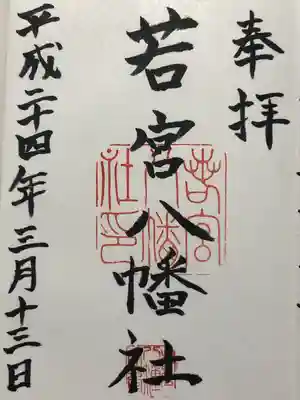 奉拝
若宮八幡社
平成二十四年三月十三日
若宮八幡社印